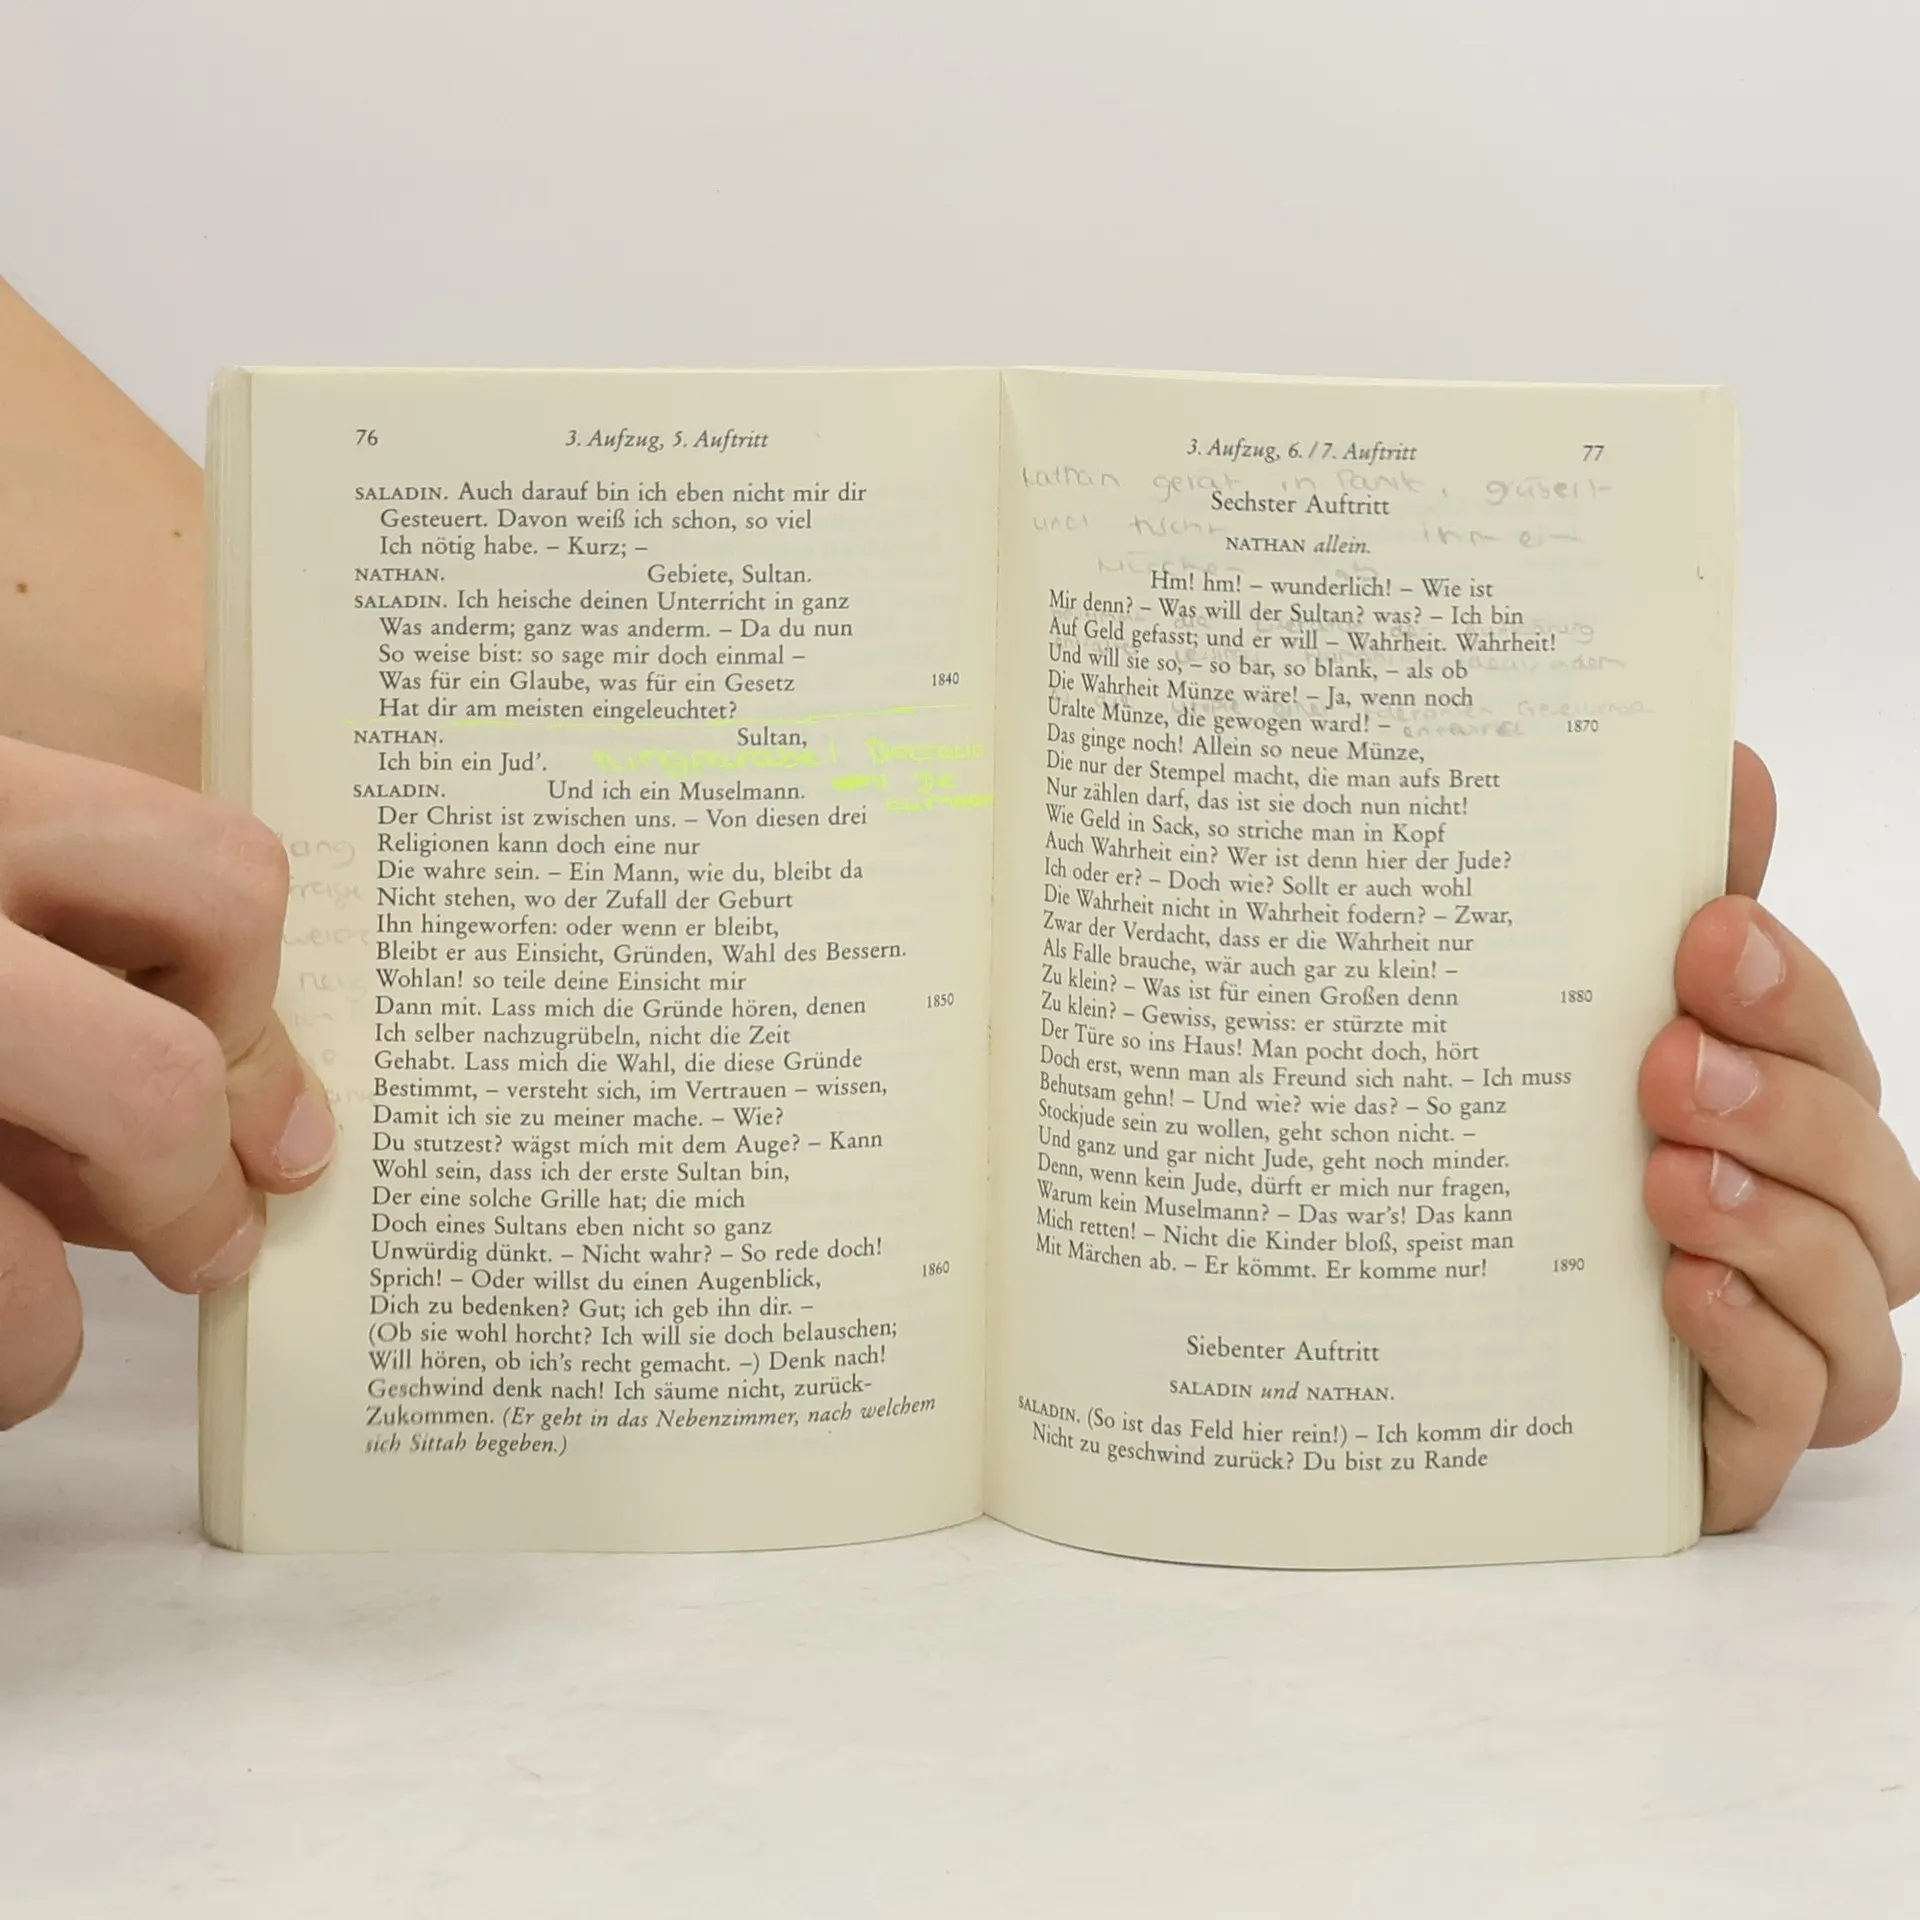 76
3. Aufzug, 5. Auftritt
SALADIN. Auch darauf bin ich eben nicht mir dir
Gesteuert. Davon weiß ich schon, so viel
Ich nötig habe. – Kurz; –
NATHAN. Gebiete, Sultan.
SALADIN. Ich heische deinen Unterricht in ganz
Was anderm; ganz was anderm. – Da du nun
So weise bist: so sage mir doch einmal –
Was für ein Glaube, was für ein Gesetz 1840
Hat dir am meisten eingeleuchtet?
NATHAN. Sultan,
Ich bin ein Jud'.
Ringparabel
SALADIN. Und ich ein Muselmann.
Der Christ ist zwischen uns. – Von diesen drei
Religionen kann doch eine nur
Die wahre sein. – Ein Mann, wie du, bleibt da
Nicht stehen, wo der Zufall der Geburt
Ihn hingeworfen: oder wenn er bleibt,
Bleibt er aus Einsicht, Gründen, Wahl des Bessern.
Wohlan! so teile deine Einsicht mir
Dann mit. Lass mich die Gründe hören, denen 1850
Ich selber nachzugrübeln, nicht die Zeit
Gehabt. Lass mich die Wahl, die diese Gründe
Bestimmt, – versteht sich, im Vertrauen – wissen,
Damit ich sie zu meiner mache. – Wie?
Du stutzest? wägst mich mit dem Auge? – Kann
Wohl sein, dass ich der erste Sultan bin,
Der eine solche Grille hat; die mich
Doch eines Sultans eben nicht so ganz
Unwürdig dünkt. – Nicht wahr? – So rede doch!
Sprich! – Oder willst du einen Augenblick, 1860
Dich zu bedenken? Gut; ich geb ihn dir. –
(Ob sie wohl horcht? Ich will sie doch belauschen;
Will hören, ob ich's recht gemacht. –) Denk nach!
Geschwind denk nach! Ich säume nicht, zurück-
Zukommen. (Er geht in das Nebenzimmer, nach welchem
sich Sittah begeben.)
3. Aufzug, 6. / 7. Auftritt
77
Nathan gerät in Panik, grübelt
Sechster Auftritt
und tischt ihm ein
NATHAN allein.
Märchen ab
Hm! hm! – wunderlich! – Wie ist
Mir denn? – Was will der Sultan? was? – Ich bin
Auf Geld gefasst; und er will – Wahrheit. Wahrheit!
Und will sie so, – so bar, so blank, – als ob
Die Wahrheit Münze wäre! – Ja, wenn noch
Uralte Münze, die gewogen ward! – 1870
Das ginge noch! Allein so neue Münze,
Die nur der Stempel macht, die man aufs Brett
Nur zählen darf, das ist sie doch nun nicht!
Wie Geld in Sack, so striche man in Kopf
Auch Wahrheit ein? Wer ist denn hier der Jude?
Ich oder er? – Doch wie? Sollt er auch wohl
Die Wahrheit nicht in Wahrheit fodern? – Zwar,
Zwar der Verdacht, dass er die Wahrheit nur
Als Falle brauche, wär auch gar zu klein! –
Zu klein? – Was ist für einen Großen denn 1880
Zu klein? – Gewiss, gewiss: er stürzte mit
Der Türe so ins Haus! Man pocht doch, hört
Doch erst, wenn man als Freund sich naht. – Ich muss
Behutsam gehn! – Und wie? wie das? – So ganz
Stockjude sein zu wollen, geht schon nicht. –
Und ganz und gar nicht Jude, geht noch minder.
Denn, wenn kein Jude, dürft er mich nur fragen,
Warum kein Muselmann? – Das war's! Das kann
Mich retten! – Nicht die Kinder bloß, speist man
Mit Märchen ab. – Er kömmt. Er komme nur! 1890
Siebenter Auftritt
SALADIN und NATHAN.
SALADIN. (So ist das Feld hier rein!) – Ich komm dir doch
Nicht zu geschwind zurück? Du bist zu Rande